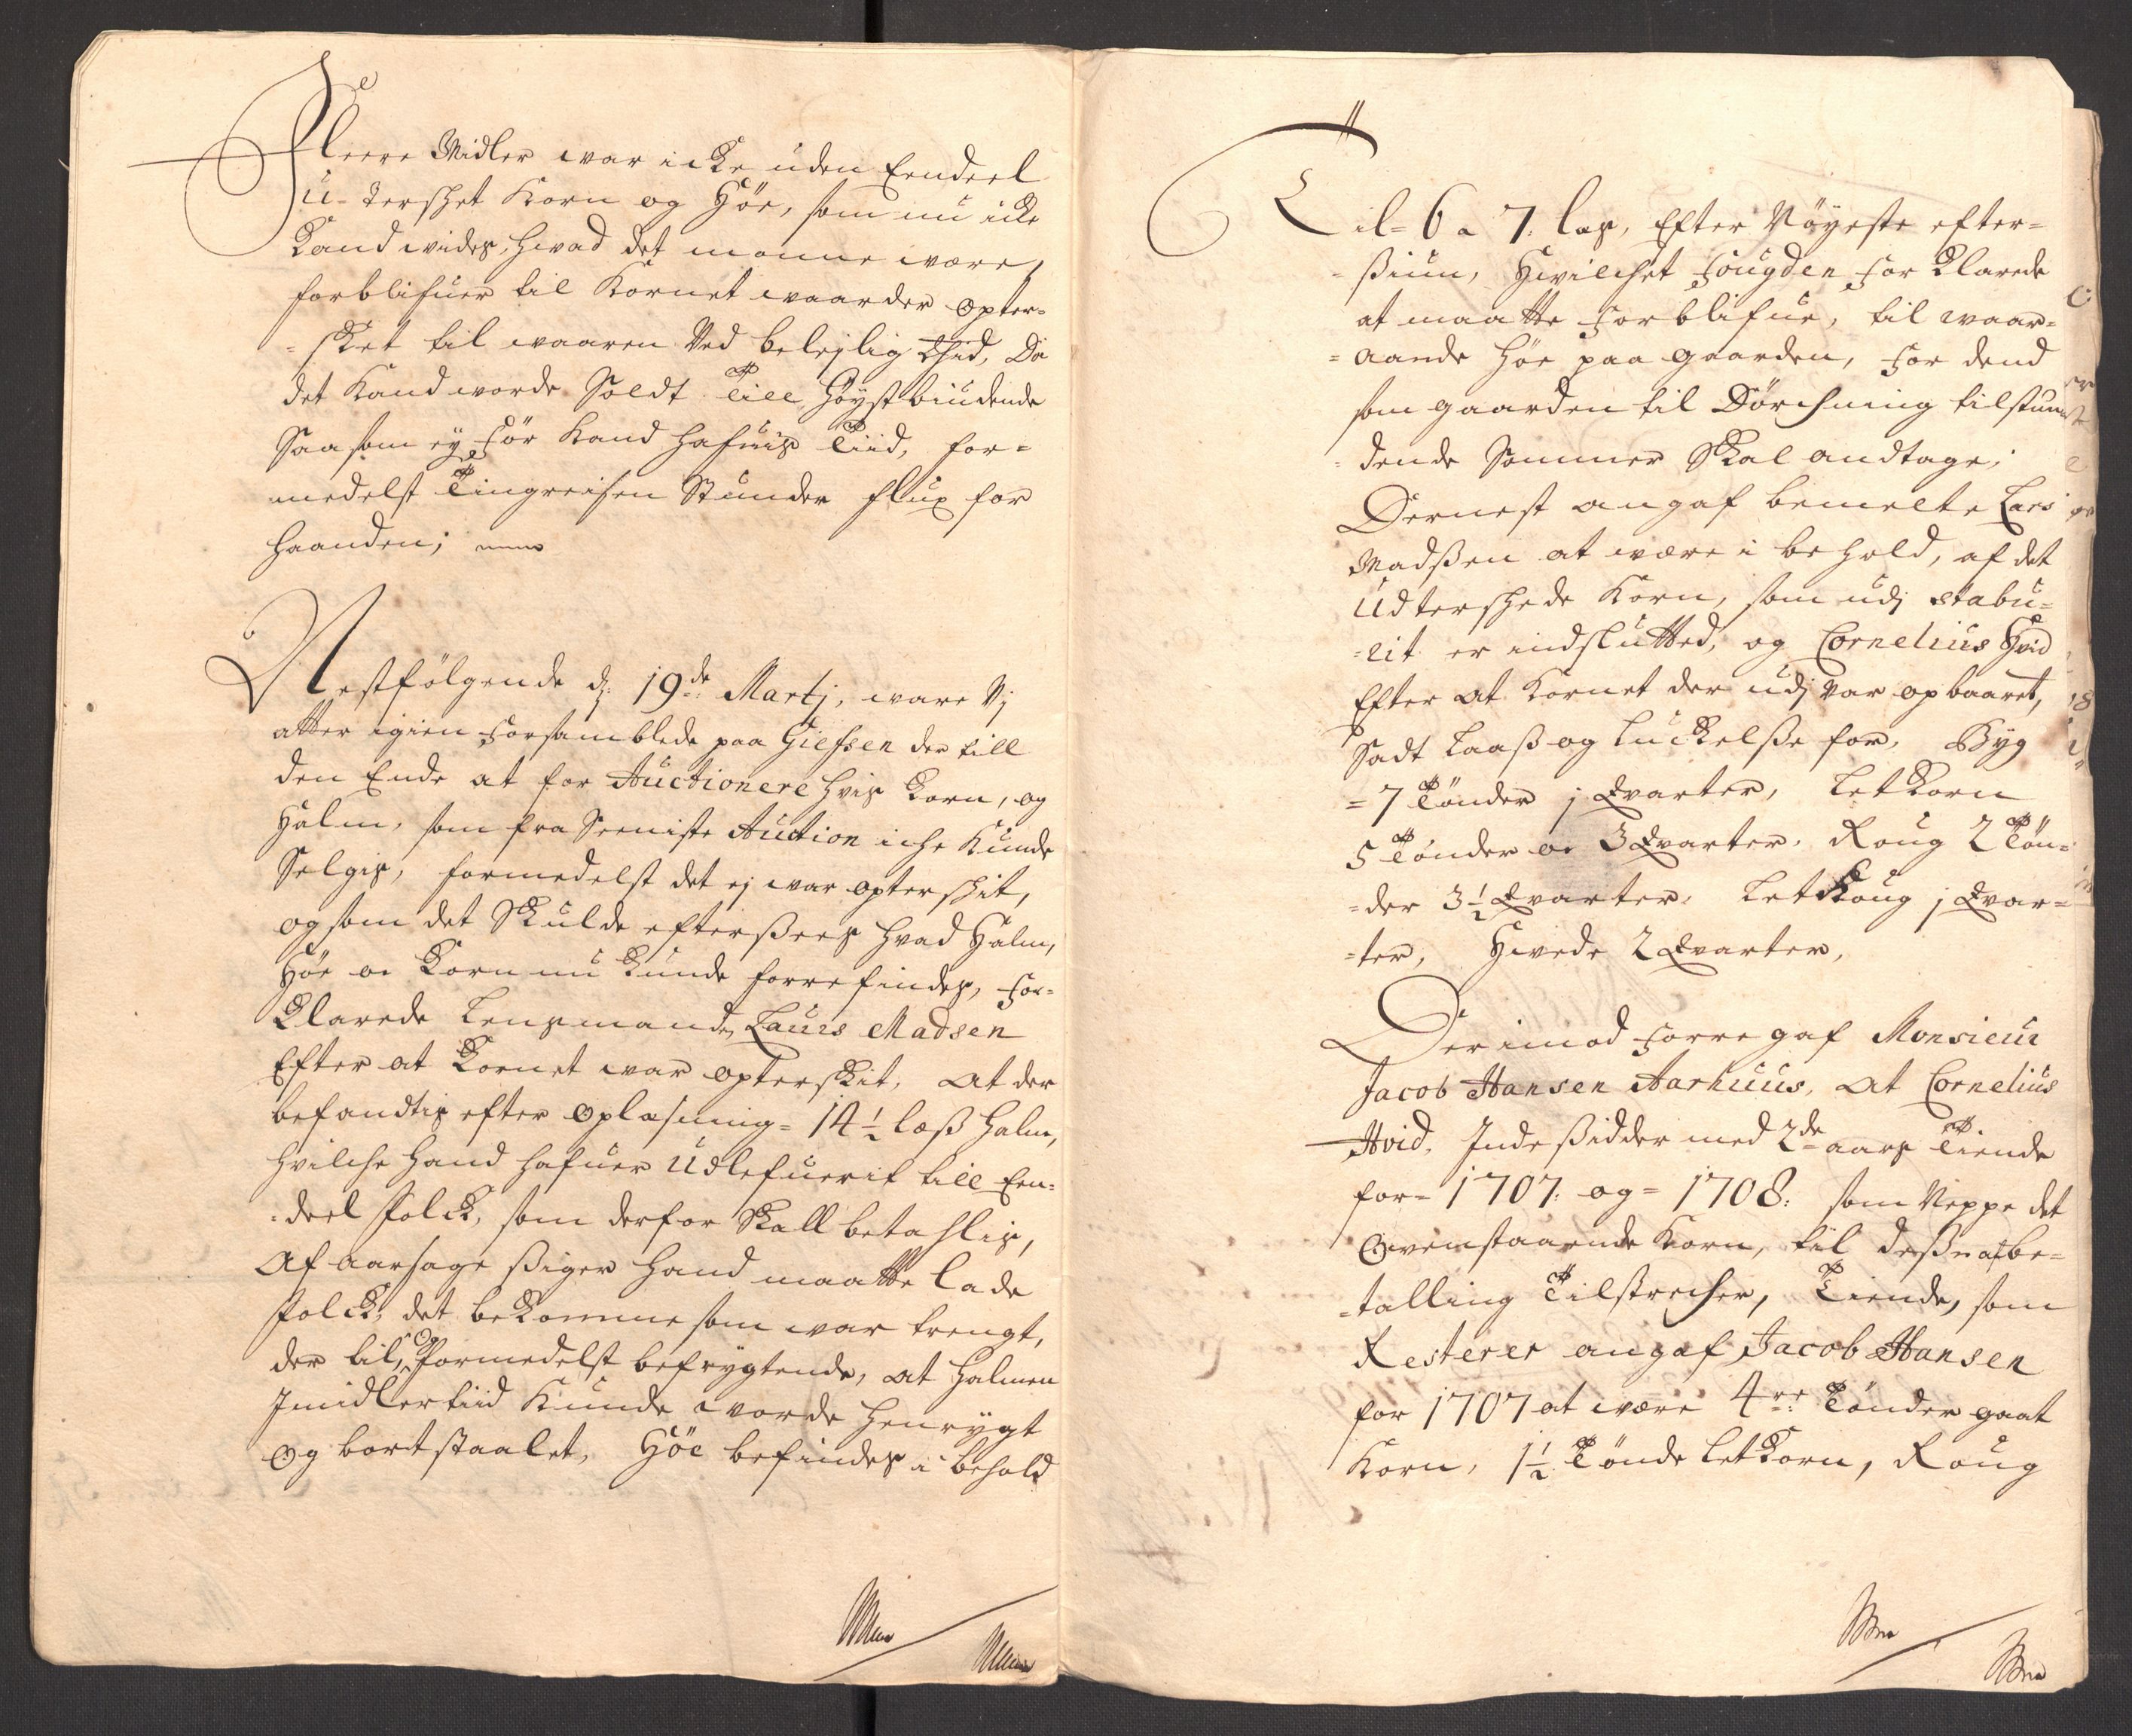 Fleere Midler war icke uden Eendeel
u-terschet Korn og Höe, som nu icke
Kand wides, hwad det monne være,
forblifuer til Kornet waarder opter-
=sket til waaren Ved beleylig Thid, Da
det Kand worde Soldt Till Höystbiudende
Saa som ey för Kand hafuis Tiid, for=
medelst Tingreisen Stunder flux for
haanden;
Nestfölgende d: 19de Martj, ware Vj
atter igien forsamblede paa Giefsen der till
den Ende at for Auctionere hvis Korn, og
Halm, som fra Seeniste Auction iche Kunde
Selgis, formedelst det ej war opterskit,
og som det Skulde efterßees hvad Halm,
Höe oc Korn nu Kunde forrefindes, for=
Klarede Lensmand Laurs Madsen
Efter at Kornet war opterskit, at der
befandtis efter oplasning= 14½ læß halm,
hvilche hand hafuer Udlefuerit till Een=
=deel folck, som derfor Skall betahlis,
Af aarsage ßiger hand maatte lade
folck, det bekomme som war trengt,
der til, Og formedelst befrygtende, at halmen
Jmidlertiid Kunde worde henrygt
Og bortstaalet, Höe befindes i behold
Til= 6 a 7: læs, Efter Nöyeste efter=
=ßiun, Hwilchet fougden for Klarede
at maatte forblifue, til waar=
=aande höe paa gaarden, for dend
som gaarden til Dörchning tilstun
=dende Sommer Skal andtage;
Dernest angaf bemelte Lars
Madßen at være i behold, af det
Udterschede Korn, som udj stabu=
=rit er indslutted, og Cornelius Hvid
Efter at Kornet der udj var opbaaret,
Sadt Laaß og luckelße for, Byg
=7 Tönder j Qvarter, Letkorn
5 Tönder oc 3 Qvarter, Roug 2 Tön=
=der 3½ Qvarter, Let Roug j Qvar=
=ter, Hwede 2 Qvarter,
Derimod forregaf Monsieur
Jacob Hansen Aarhuus, at Cornelius
Hvid, Inde ßidder med 2de aars Tiende
for= 1707: og= 1708: som Neppe det
Ovenstaaende Korn, til deßen afbe=
=talling Tilstrecher, Tiende, som
Resterer angaf Jacob Hansen
for 1707 at være 4re: Tönder gaat
Korn, 1½ Tönde Letkorn, Roug